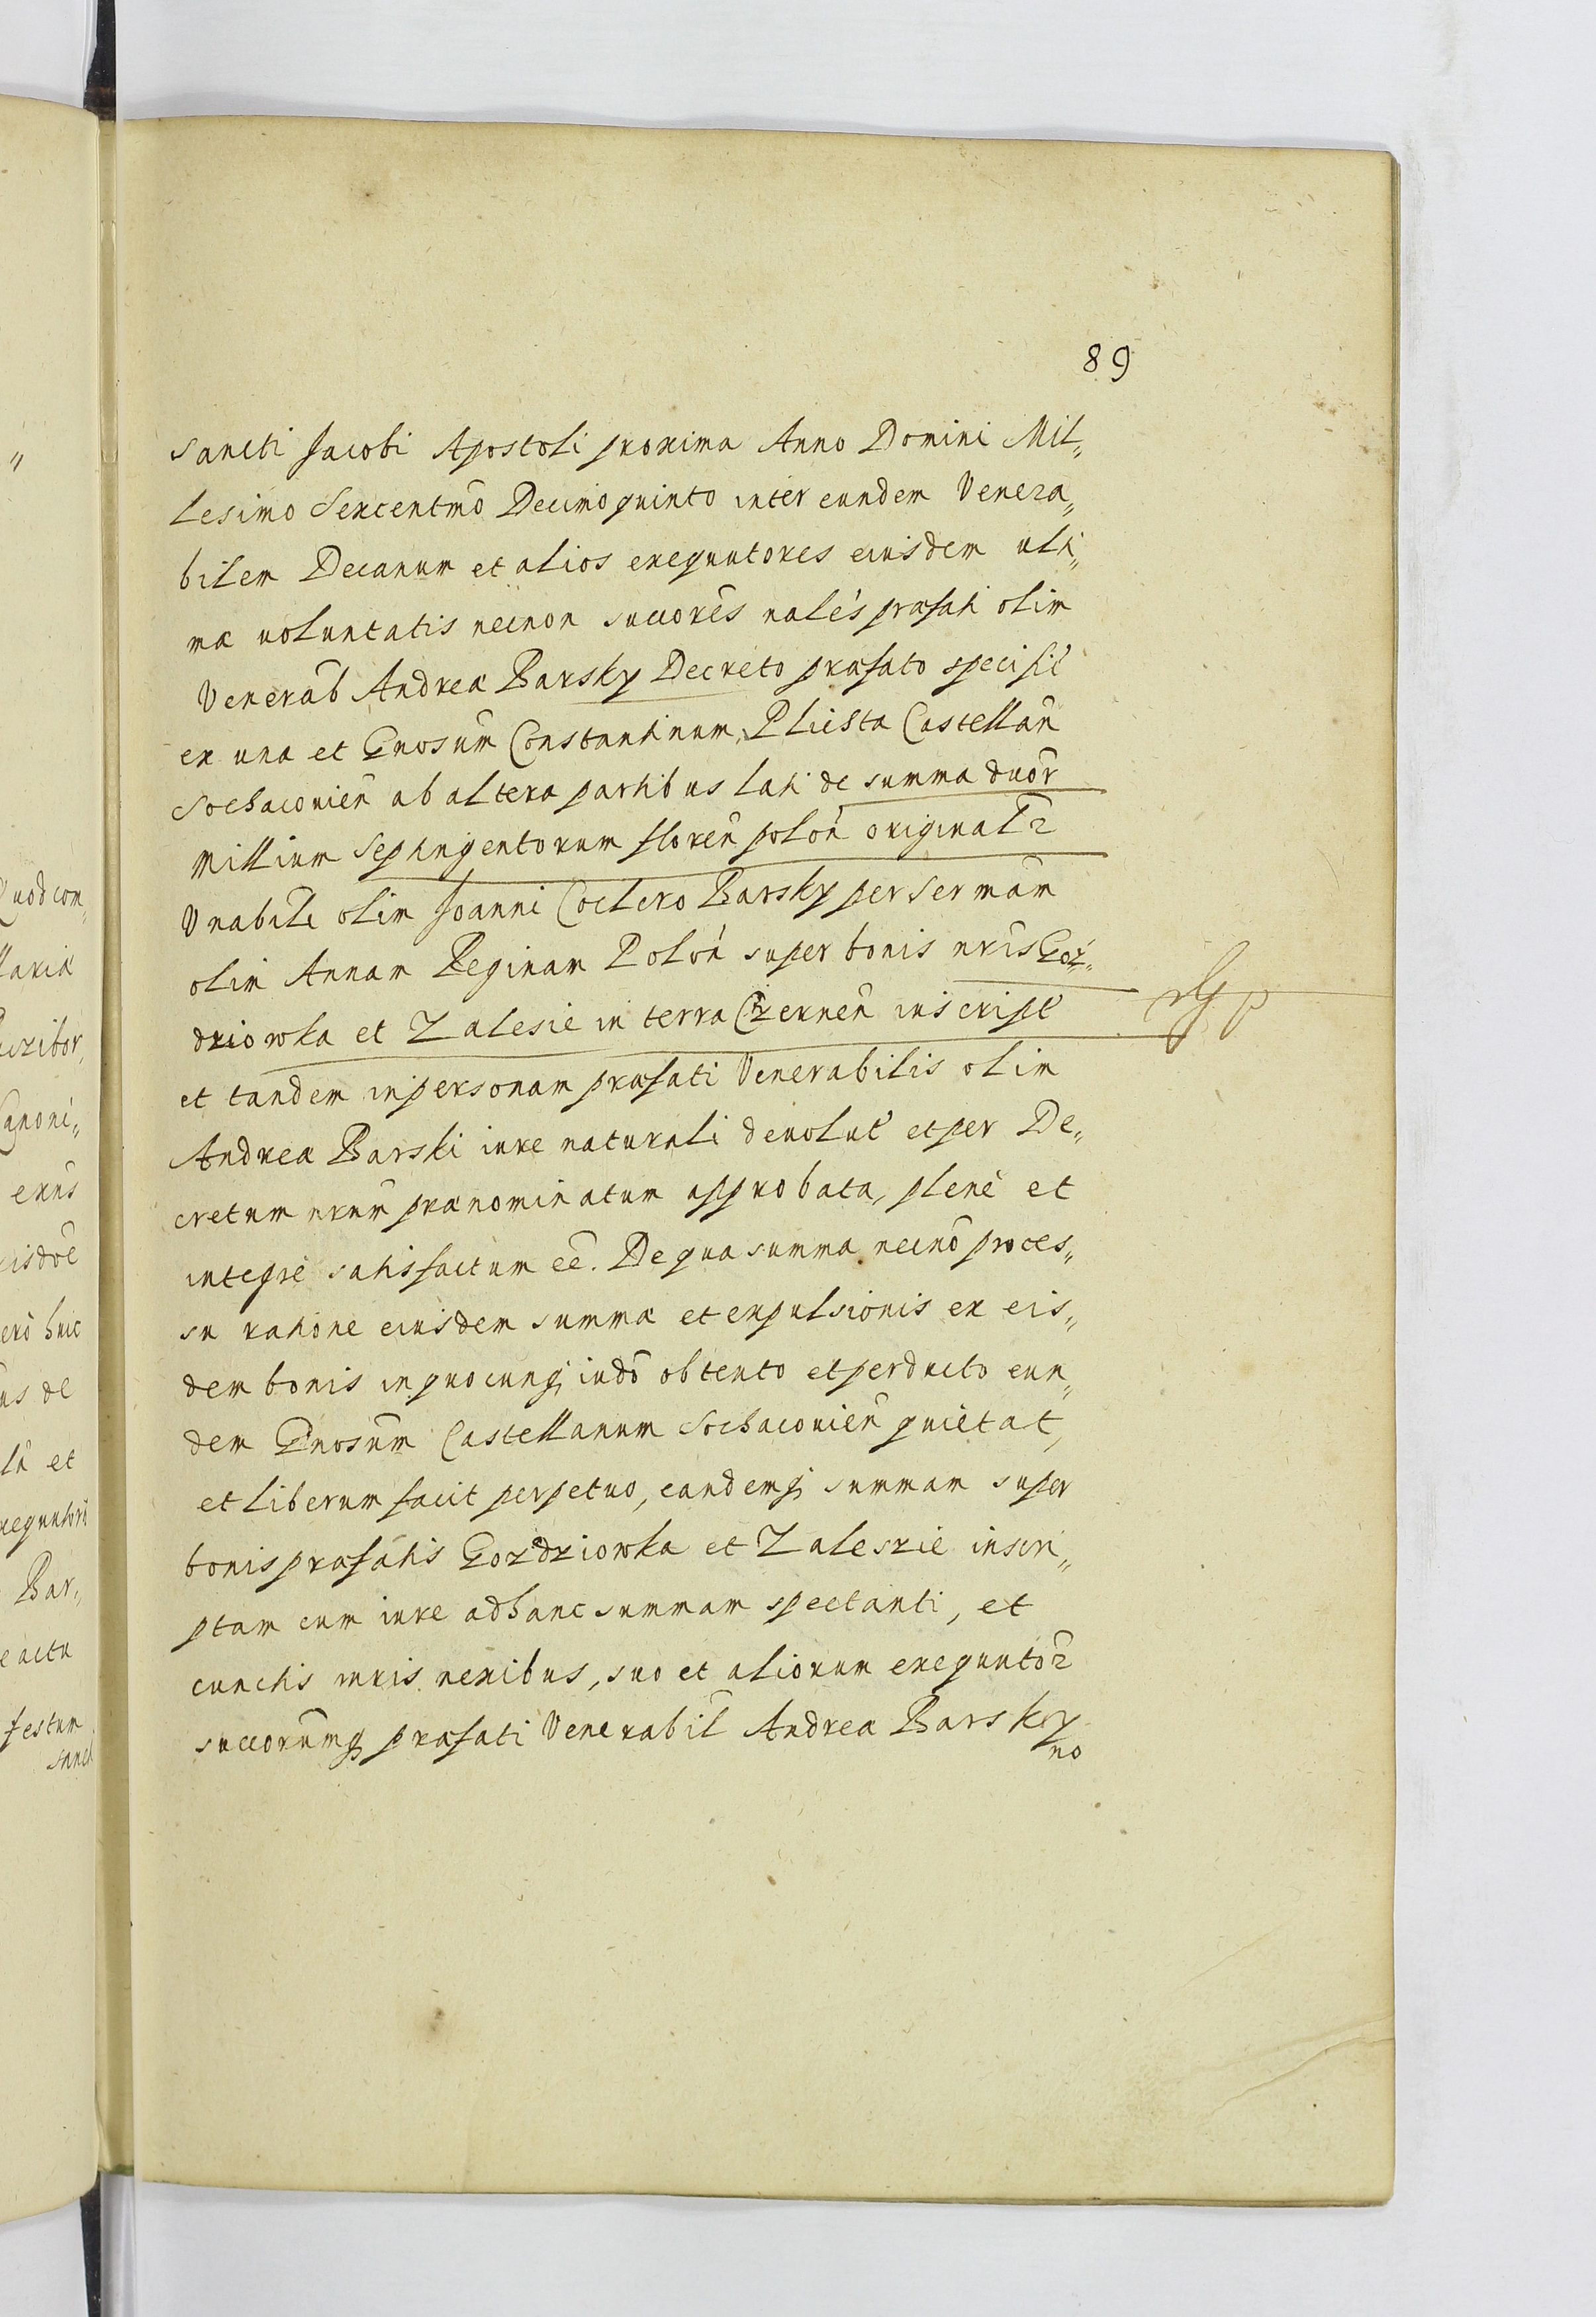 89
Sancti Jacobi Apostoli proxima Anno Domini Mil„
lesimo Sexcentmō Decimoquinto inter eundem Venera„
bilem Decanum et alios exequutores eiusdem ulti„
mæ uoluntatis necnon succorēs nalēs præfati olim
Venerāb Andreæ Barsky Decreto præfato specifič
ex una et Gnosūm Constantinum Plichta Castellan̄
Sochaconien̄ ab altera partibus lati de summa duor̄
Millium Septingentorum floren̄ polon̄ originalr̄
Vnabili olim Joanni Coclero Barsky per Ser mām
olim Annam Reginam Polon̄ super bonis nr̄is Goź„
dziowka et Zalesie in terra Czernen̄ inscript̄
et tandem in personam præfati Venerabilis olim
Andreæ Barski iure naturali deuolut̄ et per De„
cretum nr̄um prænominatum approbata, plenè et
integrè satisfactum eē. De qua summa necnō proces„
su ratione eiusdem summæ et expulsionis ex eis„
dem bonis in quocunq; iudō obtento et perducto eun„
dem Gnosūm Castellanum Sochaconien̄ quietat,
et liberum facit perpetuo, eandemq; summam super
bonis præfatis Gozdziowka et Zaleszie inscri„
ptam cum iure ad hanc summam spectanti, et
cunctis iuris nexibus, suo et aliorum exequutor̄
succorūmq; præfati Venerabil Andreæ Barsky
no
Quod com„
Canoni„
ero huic
us de
la et
Bar„
e actu
festum
sanct